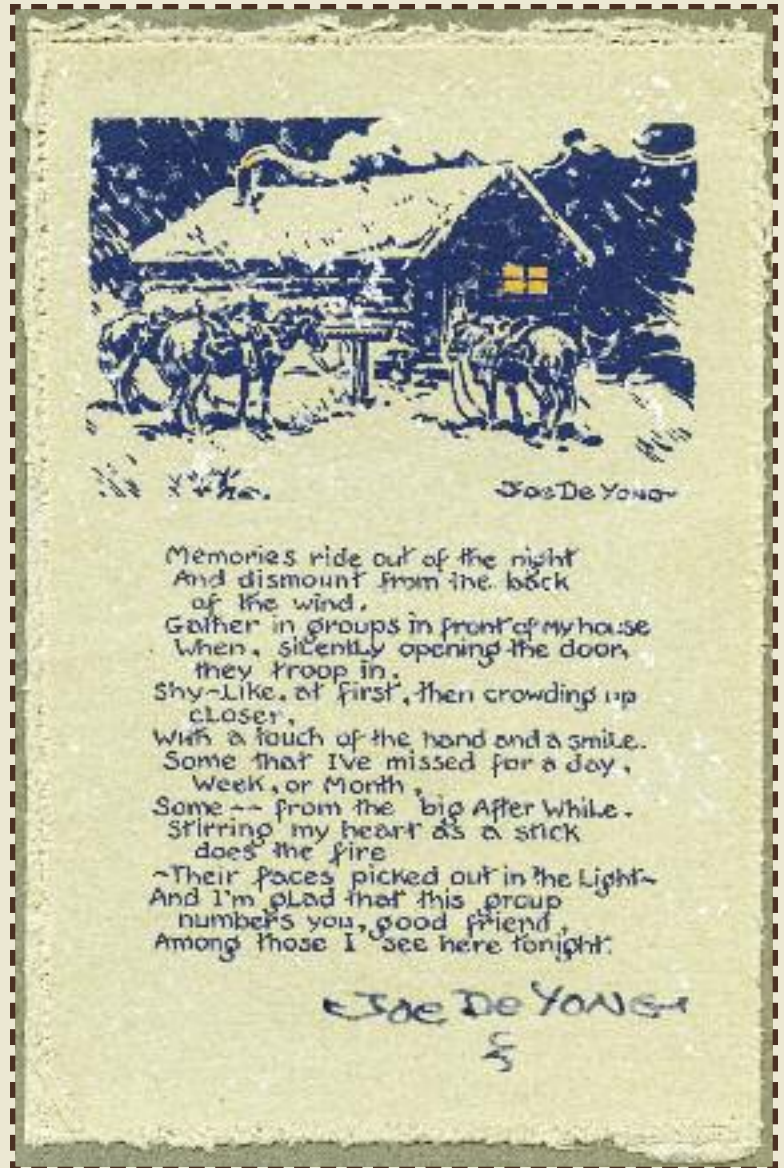 Joe De Yong
Memories ride out of the night
And dismount from the back
of the wind.
Gather in groups in front of my house
When, silently opening the door,
they troop in.
Shy-Like, at first, then crowding up
closer,
With a touch of the hand and a smile.
Some that I've missed for a day,
Week, or Month,
Some -- from the big After While.
Stirring my heart as a stick
does the fire
~Their faces picked out in the Light~
And I'm glad that this group
numbers you, good friend,
Among those I see here tonight.
Joe De Yong